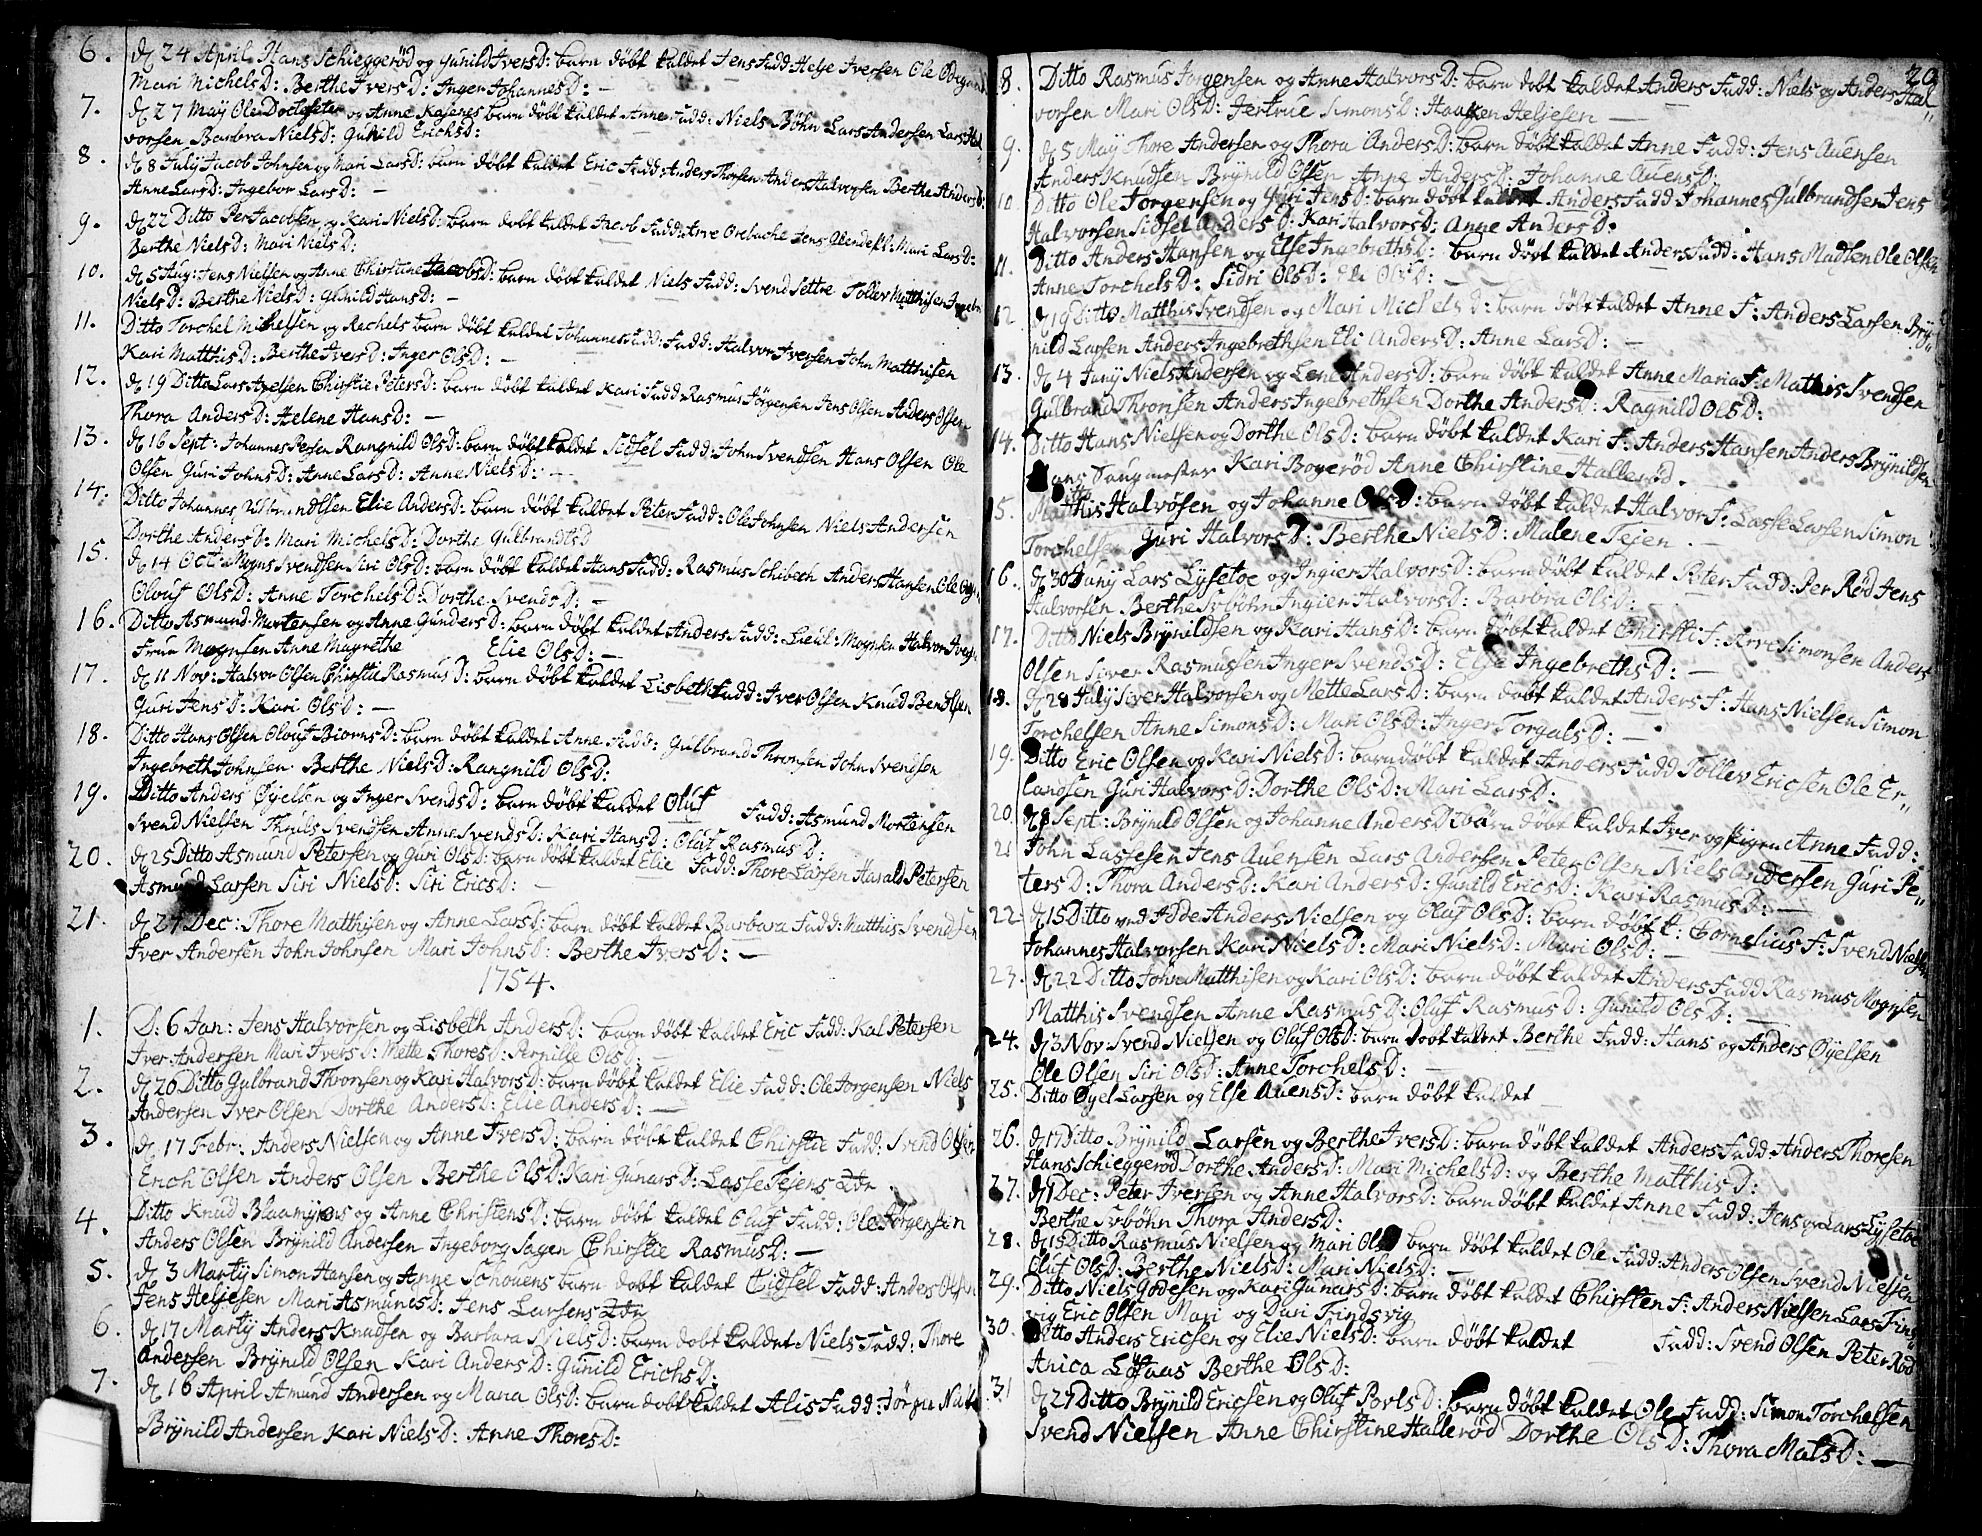 6. d 24 April Hans Schieggerød og Gunild IversD: barn døbt kaldet Jens Fadd: Helje Iversen Ole
Mari MichelsD: Berthe IversD: Inger JohannesD: —
7. d 27 Maÿ Ole og Anne barn døbt kaldet Anne Fadd: Niels Bøhn Lars Andersen Lars Hal
vorsen Barbra NielsD: Gunild ErichsD:
8. d 8 Julÿ Jacob Johnsen og Mari LarsD: barn døbt kaldet Eric Fadd: Anders Thorsen Anders Halvorsen Berthe AndersD:
Anne LarsD: Ingebor LarsD: —
9. d 22 Ditto Per Jacobsen og Kari NielsD: barn døbt kaldet Jacob Fadd: Arve Orebache Jens Mari LarsD:
Berthe NielsD: Mari NielsD:
10. d 5 Aug: Jens Nielsen og Anne Chirstine JacobsD: barn døbt kaldet Niels Fadd: Svend Settre Tollev Matthisen
NielsD: Berthe NielsD: Gunild HansD: —
11. Ditto Torchel Michelsen og Rachels barn døbt kaldet Johannes Fadd: Halvor Iversen John Matthisen
Kari MatthisD: Berthe IversD: Inger OlsD: —
12. d 19 Ditto Lars Axelsen Chirstie PetersD: barn døbt kaldet Kari Fadd: Rasmus Jørgensen Jens Olsen Anders Olsen
Thora AndersD: Helene HansD: —
13. d 16 Sept: Johannes Persen Rangnild OlsD: barn døbt kaldet Sidsel Fadd: John Svendsen Hans Olsen Ole
Olsen Guri JohnsD: Anne LarsD: Anne NielsD: —
14. Ditto Johannes Elie AndersD: barn døbt kaldet Peter Fadd: Ole Johnsen Niels Andersen
Dorthe AndersD: Mari MichelsD: Dorthe GulbrandtsD
15. d 14 Oct: Mogns Svendsen Siri OlsD: barn døbt kaldet Hans Fadd: Rasmus Schibech Anders Hansen Ole
Olouf OlsD: Anne TorchelsD: Dorthe SvendsD: —
16. Ditto Asmund Mortensen og Anne GundersD: barn døbt kaldet Anders Fadd: Halvor
Frue Mognsen Anne Magrethe Elie OlsD: —
17. d 11 Nov: Halvor Olsen Chirstie RasmusD: barn døbt kaldet Lisbeth Fadd: Iver Olsen Knud Bentsen
Guri JensD: Kari OlsD: —
18. Ditto Hans Olsen Olouf BiørnsD: barn døbt kaldet Anne Fadd: Gulbrand Thronsen John Svendsen
Ingebreth Johnsen Berthe NielsD: Rangnild OlsD:
19. Ditto Anders Øÿelsen og Inger SvendsD: barn døbt kaldet Oluf Fadd: Asmund Mortensen
Svend Nielsen Thruls Svendsen Anne SvendsD: Kari HansD: Oluf RasmusD:
20. d 25 Ditto Asmund Petersen og Guri OlsD: barn døbt kaldet Elie Fadd: Thore Larsen Harald Petersen
Asmund Larsen Siri NielsD: Siri EricsD: —
21. d 27 Dec: Thore Matthisen og Anne LarsD: barn døbt kaldet Barbara Fadd: Matthis Svendsen
Iver Andersen John Johnsen Mari JohnsD: Berthe IversD: —
1754.
1. D: 6 Jan: Jens Halvorsen og Lisbeth AndersD: barn døbt kaldet Eric Fadd: Kal Petersen
Iver Andersen Mari IversD: Mette ThoresD: Pernille OlsD: —
2. d 20 Ditto Gulbrand Thronsen og Kari HalvorsD: barn døbt kaldet Elie Fadd: Ole Jorgensen Niels
Andersen Iver Olsen Dorthe AndersD: Elie AndersD: —
3. d 17 Febr: Anders Nielsen og Anne IversD: barn døbt kaldet Chirstie Fadd: Svend Olsen
Erich Olsen Anders Olsen Berthe OlsD: Kari GunarsD: Lasse Tejens
4. Ditto Knud Blaamÿrs og Anne ChristensD: barn døbt kaldet Oluf Fadd: Ole Jørgensen
Anders Olsen Brÿnild Andersen Ingeborg Sagen Chirstie RasmusD: —
5. d 3 Martÿ Simon Hansen og Anne Schouens barn døbt kaldet Cidsel Fadd: Anders Olsen
Jens Heljesen Mari AsmundsD: Jens Larsens
6. d 17 Martÿ Anders Knudsen og Barbara NielsD: barn døbt kaldet Niels Fadd: Thore
Andersen Brÿnild Olsen Kari AndersD: Gunild ErichsD:
7. d 16 April Amund Andersen og Maria OlsD: barn døbt kaldet Alis Fadd: Jørgen
Brÿnild Andersen Kari NielsD: Anne ThoresD:
20
8. Ditto Rasmus Jorgensen og Anne HalvorsD: barn døbt kaldet Anders Fadd: Niels og Anders Hal
vorsen Mari OlsD: Jertrue SimonsD: Haagen Heljesen —
9. d 5 Maÿ Thore Andersen og Thora AndersD: barn døbt kaldet Anne Fadd: Jens Auensen
Anders Knudsen Brÿnild Olsen Anne AndersD: Johanne AuensD:
10. Ditto Ole Jorgensen og Guri JensD: barn døbt kaldet Anders Fadd Johannes Gulbrandsen Jens
Halvorsen Sidsel AndersD: Kari HalvorsD: Anne AndersD:
11. Ditto Anders Hansen og Else IngebrethsD: barn døbt kaldet Anders Fadd: Hans Madsen Ole Olsen
Anne TorchelsD: Sidri OlsD: OlsD: —
12 d 19 Ditto Matthis Svendsen og Mari MichelsD: barn døbt kaldet Anne F: Anders Larsen Brÿ
nild Larsen Anders Ingebrethsen Eli AndersD: Anne LarsD: —
13. d 4 Junÿ Niels Andersen og Lene AndersD: barn døbt kaldet Anne Maria F: Mathis Svendsen
Gulbrand Thronsen Anders Ingebrethsen Dorthe AndersD: Ragnild OlsD:
14. Ditto Hans Nielsen og Dorthe OlsD: barn døbt kaldet Kari F: Anders Hansen Anders Brÿnildsen
Hans Saugmester Kari Bogerød Anne Chirstine Hallerød.
15. Ditto Matthis Halvorsen og Johanne OlsD: barn døbt kaldet Halvor F: Lasse Larsen Simon
Torchelsen Guri HalvorsD: Berthe NielsD: Malene Tejen. —
16. d 30 Junÿ Lars Lÿsetoe og Ingier HalvorsD: barn døbt kaldet Peter Fadd: Per Rød Jens
Halvorsen Berthe Søbøhn Ingier HalvorsD: Barbra OlsD:
17. Ditto Niels Brÿnildsen og Kari HansD: barn døbt kaldet Chirsti F: Arve Simonsen Anders
Olsen Siver Rasmussen Inger SvendsD: Else IngebrethsD: —
18. d 28 Julÿ Siver Halvorsen og Mette LarsD: barn døbt kaldet Anders F: Hans Nielsen Simon
Torchelsen Anne SimonsD: Mari OlsD: Inger TorgalsD: —
19. Ditto Eric Olsen og Kari NielsD: barn døbt kaldet Anders Fadd Tollev Ericsen Ole Er
landsen Guri HalvorsD: Dorthe OlsD: Mari LarsD:
20. d 8 Sept: Brÿnild Olsen og Johanne AndersD: barn døbt kaldet Iver og pigen Anne Fadd:
21 John Lassesen Jens Auensen Lars Andersen Peter Olsen Niels Andersen Guri Pe
tersD: Thora AndersD: Kari AndersD: Gunild EricsD: Kari RasmusD: —
22. d 15 Ditto ved Idde Anders Nielsen og Oluf OlsD: barn døbt k: Cornelius F: Svend Nielsen
Johannes Halvorsen Kari NielsD: Mari NielsD: Mari OlsD: —
23. d 22 Ditto John Matthisen og Kari OlsD: barn døbt kaldet Anders Fadd Rasmus Mognsen
Matthis Svendsen Anne RasmusD: Oluf RasmusD: Gunild OlsD: —
24. d 3 Nov Svend Nielsen og Oluf OlsD: barn døbt kaldet Berthe Fadd: Hans og Anders Øÿelsen
Ole Olsen Siri OlsD: Anne TorchelsD: —
25. Ditto Øÿel Larsen og Else AuensD: barn døbt kaldet —
26. d 17 Ditto Brÿnild Larsen og Berthe IversD: barn døbt kaldet Anders Fadd: Anders Thoresen
Hans Schieggerød Dorthe AndersD: Mari MichelsD: og Berthe MatthisD:
27. d 1 Dec: Peter Iversen og Anne HalvorsD: barn døbt kaldet Anne Fadd: Jens og Lars Lÿsetoe
Berthe Søbøhn Thora AndersD:
28. d 15 Ditto Rasmus Nielsen og Mari OlsD barn døbt kaldet Ole Fadd: Anders Olsen Svend Nielsen
Oluf OlsD: Berthe NielsD: Mari NielsD: —
29. Ditto Niels Godesen og Kari GunarsD: barn døbt kaldet Chirsten F: Anders Nielsen Lars Tins
vig Eric Olsen Mari og Dari Tindsvig
30. Ditto Anders Ericsen og Elie NielsD: barn døbt kaldet Fadd: Svend Olsen Peter Rød
Anica Berthe OlsD:
31 d 27 Ditto Brÿnild Ericsen og Oluf PovlsD: barn døbt kaldet Ole Fadd: Simon Torchelsen
Svend Nielsen Anne Chirstine Hallerød Dorthe OlsD: Thora MatsD: —